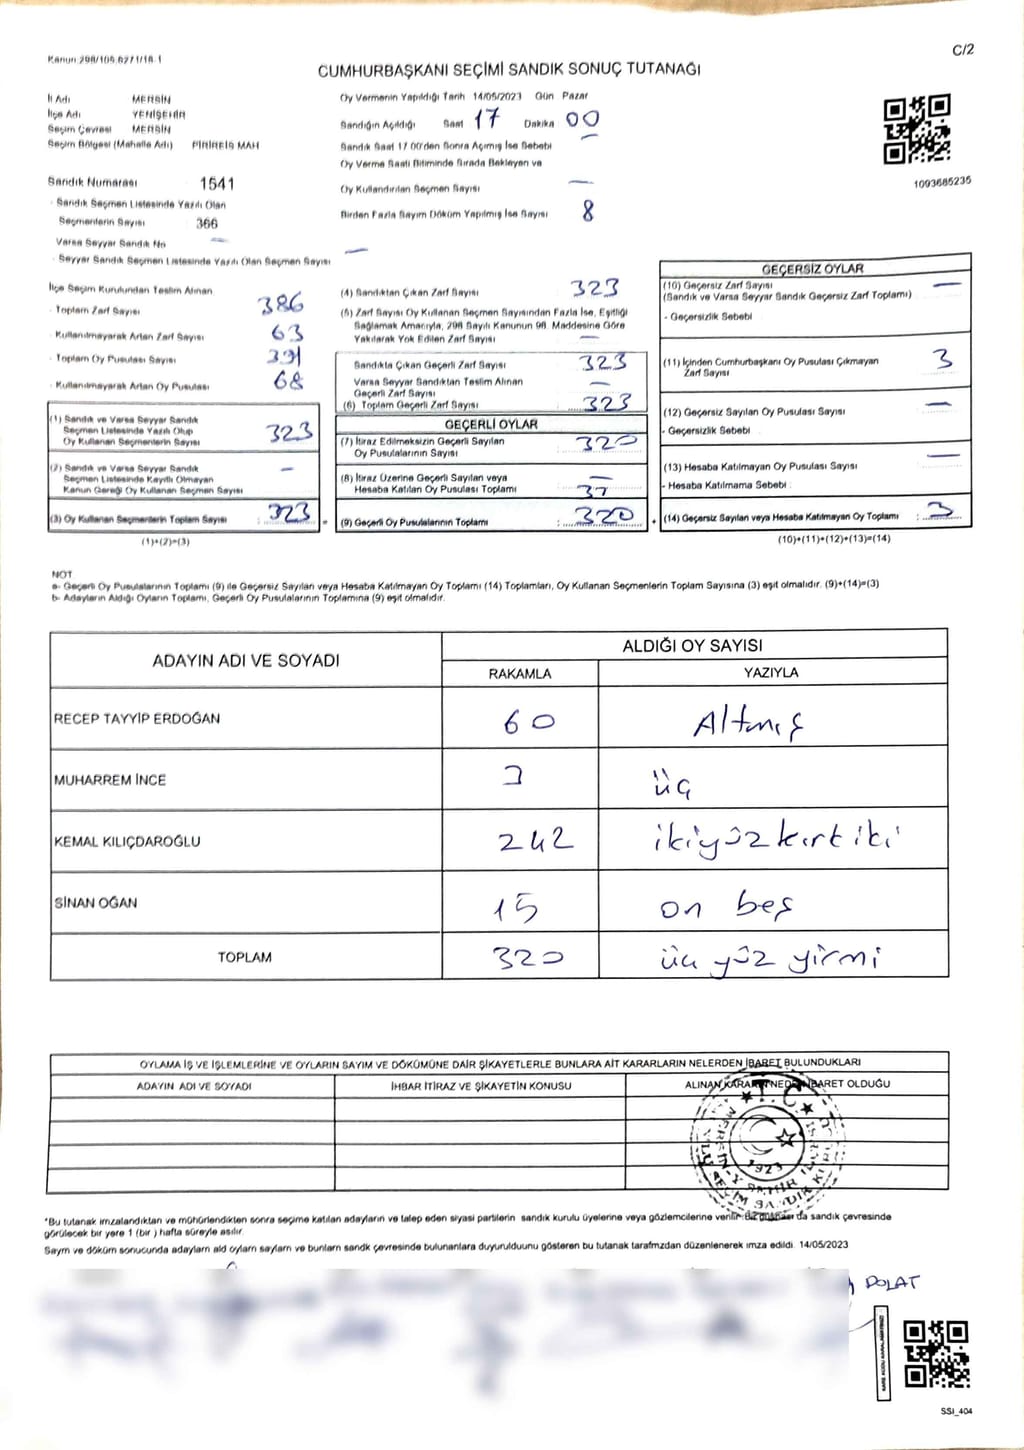 Kanun 298/105 6271/18-1
C/2
CUMHURBAŞKANI SEÇİMİ SANDIK SONUÇ TUTANAĞI
İl Adı MERSİN
İlçe Adı YENİŞEHİR
Seçim Çevresi MERSİN
Seçim Bölgesi (Mahalle Adı) PİRİREİS MAH
Sandık Numarası 1541
- Sandık Seçmen Listesinde Yazılı Olan
Seçmenlerin Sayısı 366
Varsa Seyyar Sandık No —
- Seyyar Sandık Seçmen Listesinde Yazılı Olan Seçmen Sayısı —
Oy Vermenin Yapıldığı Tarih 14/05/2023 Gün Pazar
Sandığın Açıldığı Saat 17 Dakika 00
Sandık Saat 17 00'den Sonra Açılmış İse Sebebi —
Oy Verme Saati Bitiminde Sırada Bekleyen ve
Oy Kullandırılan Seçmen Sayısı —
Birden Fazla Sayım Döküm Yapılmış İse Sayısı 8
1093685235
İlçe Seçim Kurulundan Teslim Alınan
- Toplam Zarf Sayısı 386
- Kullanılmayarak Artan Zarf Sayısı 63
- Toplam Oy Pusulası Sayısı 391
- Kullanılmayarak Artan Oy Pusulası 68
(1) Sandık ve Varsa Seyyar Sandık
Seçmen Listesinde Yazılı Olup
Oy Kullanan Seçmenlerin Sayısı 323
(2) Sandık ve Varsa Seyyar Sandık
Seçmen Listesinde Kayıtlı Olmayan
Kanun Gereği Oy Kullanan Seçmen Sayısı —
(3) Oy Kullanan Seçmenlerin Toplam Sayısı : 323
(1)+(2)=(3)
(4) Sandıktan Çıkan Zarf Sayısı 323
(5) Zarf Sayısı Oy Kullanan Seçmen Sayısından Fazla İse, Eşitliği
Sağlamak Amacıyla, 298 Sayılı Kanunun 98. Maddesine Göre
Yakılarak Yok Edilen Zarf Sayısı —
Sandıkta Çıkan Geçerli Zarf Sayısı 323
Varsa Seyyar Sandıktan Teslim Alınan
Geçerli Zarf Sayısı —
(6) Toplam Geçerli Zarf Sayısı 323
GEÇERLİ OYLAR
(7) İtiraz Edilmeksizin Geçerli Sayılan
Oy Pusulalarının Sayısı 320
(8) İtiraz Üzerine Geçerli Sayılan veya
Hesaba Katılan Oy Pusulası Toplamı —
= (9) Geçerli Oy Pusulalarının Toplamı : 320
GEÇERSİZ OYLAR
(10) Geçersiz Zarf Sayısı —
(Sandık ve Varsa Seyyar Sandık Geçersiz Zarf Toplamı)
- Geçersizlik Sebebi
(11) İçinden Cumhurbaşkanı Oy Pusulası Çıkmayan
Zarf Sayısı 3
(12) Geçersiz Sayılan Oy Pusulası Sayısı —
- Geçersizlik Sebebi
(13) Hesaba Katılmayan Oy Pusulası Sayısı —
- Hesaba Katılmama Sebebi
+ (14) Geçersiz Sayılan veya Hesaba Katılmayan Oy Toplamı : 3
(10)+(11)+(12)+(13)=(14)
NOT
a- Geçerli Oy Pusulalarının Toplamı (9) ile Geçersiz Sayılan veya Hesaba Katılmayan Oy Toplamı (14) Toplamları, Oy Kullanan Seçmenlerin Toplam Sayısına (3) eşit olmalıdır. (9)+(14)=(3)
b- Adayların Aldığı Oyların Toplamı, Geçerli Oy Pusulalarının Toplamına (9) eşit olmalıdır.
ADAYIN ADI VE SOYADI ALDIĞI OY SAYISI
RAKAMLA YAZIYLA
RECEP TAYYİP ERDOĞAN 60 Altmış
MUHARREM İNCE 3 üç
KEMAL KILIÇDAROĞLU 242 ikiyüzkırkiki
SİNAN OĞAN 15 on beş
TOPLAM 320 üç yüz yirmi
OYLAMA İŞ VE İŞLEMLERİNE VE OYLARIN SAYIM VE DÖKÜMÜNE DAİR ŞİKAYETLERLE BUNLARA AİT KARARLARIN NELERDEN İBARET BULUNDUKLARI
ADAYIN ADI VE SOYADI İHBAR İTİRAZ VE ŞİKAYETİN KONUSU ALINAN KARARIN NEDEN İBARET OLDUĞU
T.C
1923
*Bu tutanak imzalandıktan ve mühürlendikten sonra seçime katılan adayların ve talep eden siyasi partilerin sandık kurulu üyelerine veya gözlemcilerine verilir. Bir nüshası da sandık çevresinde
görülecek bir yere 1 (bir ) hafta süreyle asılır.
Saym ve döküm sonucunda adaylarn ald oylarn saylarn ve bunlarn sandk çevresinde bulunanlara duyurulduunu gösteren bu tutanak tarafmzdan düzenlenerek imza edildi. 14/05/2023
POLAT
SSI_404